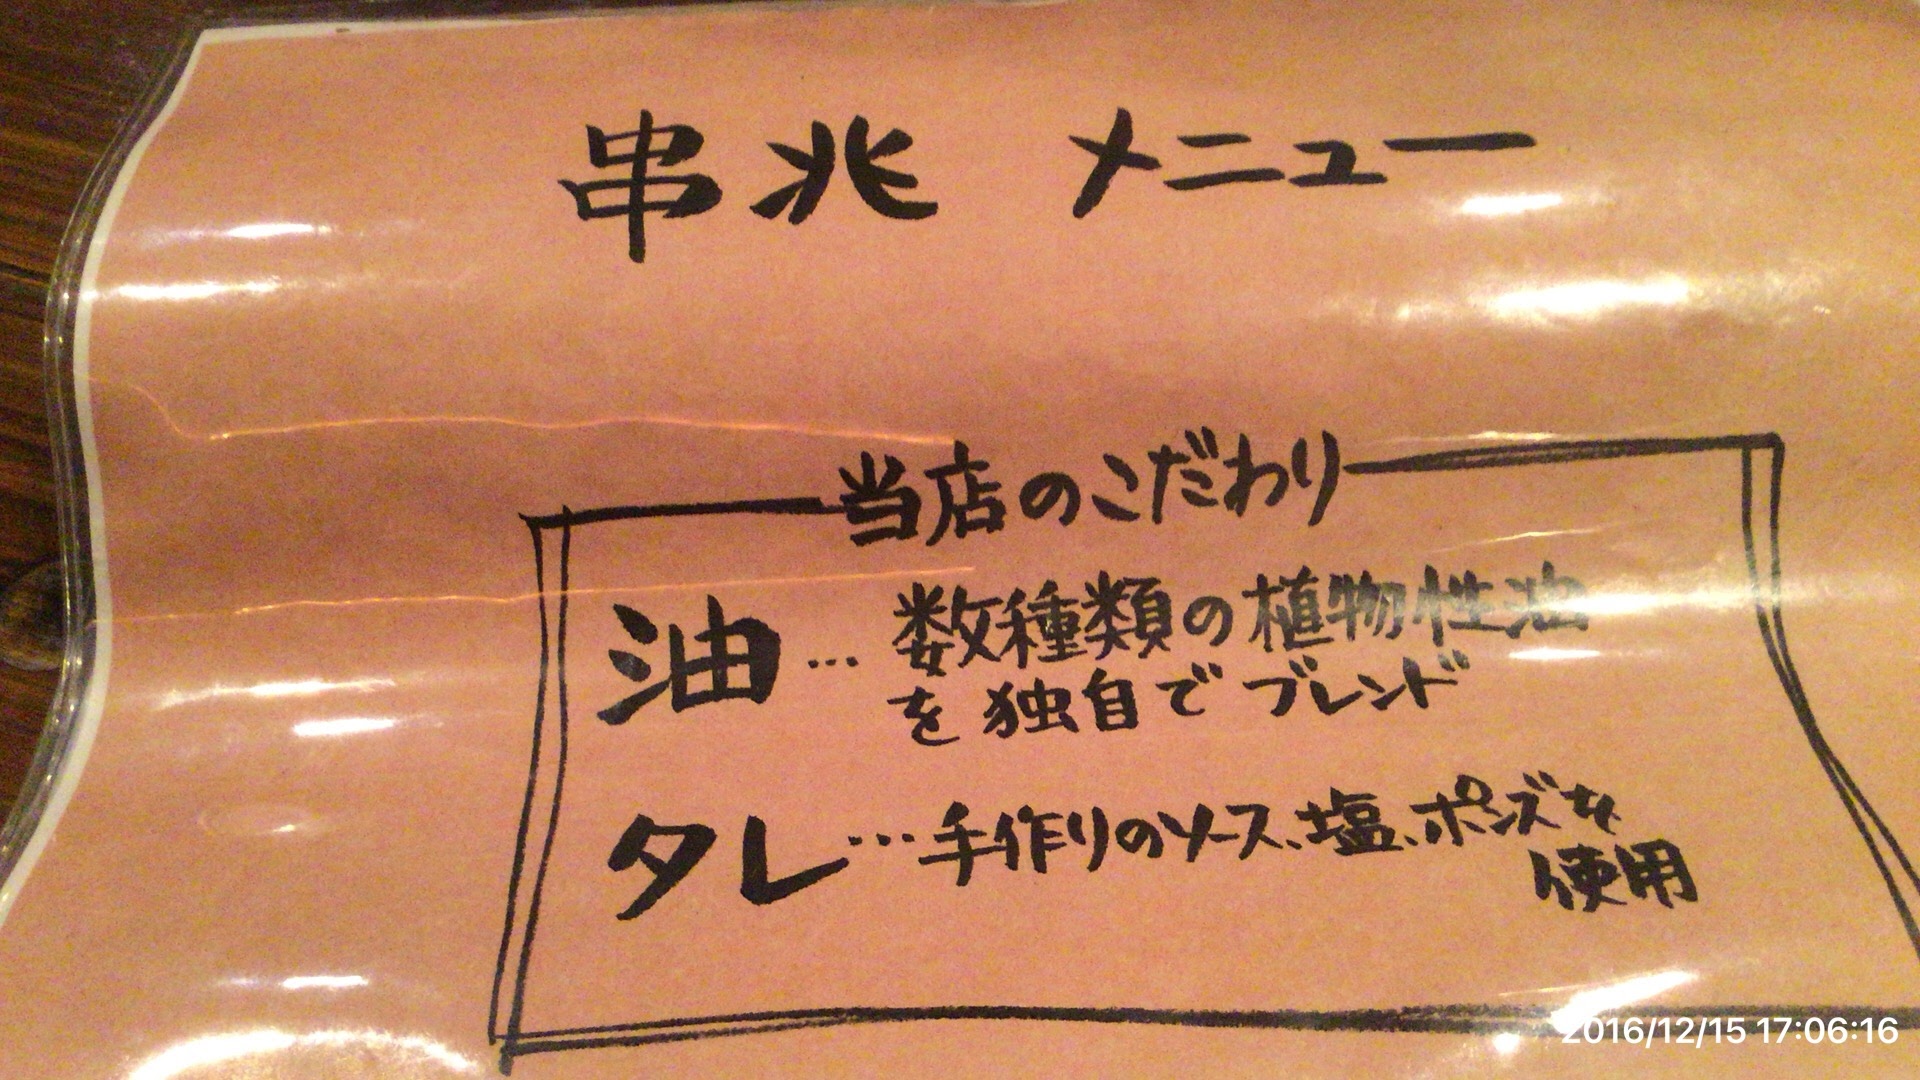 串兆 メニュー
当店のこだわり
油… 数種類の植物性油
を独自でブレンド
タレ…手作りのソース、塩、ポンズを
使用
2016/12/15 17:06:16